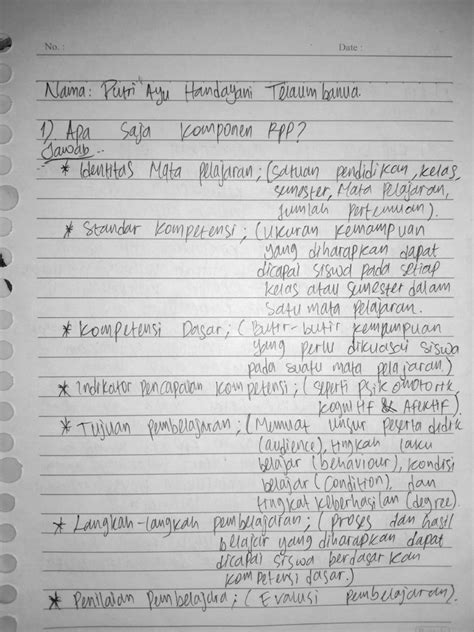 No. :
Date :
Nama: Putri Ayu Handayani Telaumbanua
1) Apa saja komponen RPP?
Jawab..
* Identitas Mata pelajaran; (Satuan pendidikan, kelas,
semester, Mata Pelajaran,
Jumlah Pertemuan).
* Standar Kompetensi; (Ukuran kemampuan
yang diharapkan dapat
dicapai siswa pada setiap
kelas atau semester dalam
satu mata pelajaran.
* Kompetensi Dasar; (Butir-butir kemampuan
yang perlu dikuasai siswa
pada suatu mata pelajaran.)
* Indikator Pencapaian Kompetensi; (seperti Psikomotorik,
Kognitif & Afektif).
* Tujuan pembelajaran; (Memuat unsur peserta didik
(audience), tingkah laku
belajar (behaviour), kondisi
belajar (condition), dan
tingkat keberhasilan (degree).
* Langkah-langkah pembelajaran; (Proses dan hasil
belajar yang diharapkan dapat
dicapai siswa berdasarkan
kompetensi dasar.)
* Penilaian Pembelajara; (Evaluasi pembelajaran).